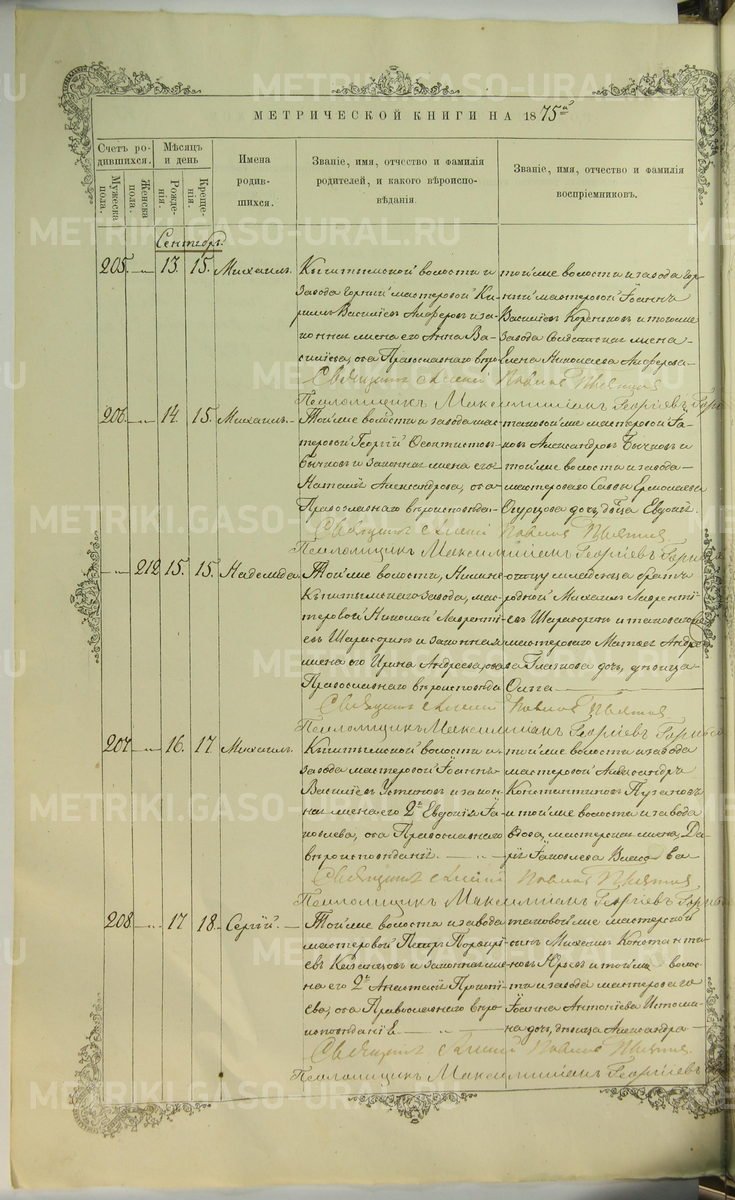 МЕТРИЧЕСКОЙ КНИГИ НА 1875й
Счетъ родившихся.
Мужеска пола.
Женска пола.
Мѣсяцъ и день
Рожденія.
Крещенія.
Имена родившихся.
Званіе, имя, отчество и фамилія родителей, и какого вѣроисповѣданія.
Званіе, имя, отчество и фамилія воспріемниковъ.
Сентябрь.
205. 13. 15. Михаилъ.
Кыштымской волости и
завода горный мастеровой Ки-
риллъ Василіевъ Алферовъ и за-
конная жена его Анна Ва-
силіева, оба Православнаго вѣро
той же волости и завода гор-
ный мастеровой Іоаннъ
Василіевъ Кореньковъ и того же
завода солдатская жена
Елена Николаева Алферова
Священникъ Алексій
Псаломщикъ Максимиліанъ Георгіевъ
206. 14. 15. Михаилъ.
Той же волости и завода мас-
теровой Георгій Ѳеоктистовъ
Бычковъ и законная жена его
Наталія Александрова, оба
Православнаго вѣроисповѣда-
таковой же мастеровой Іа-
ковъ Александровъ Бычковъ и
той же волости и завода
мастероваго Саввы Ермолаева
дочь, дѣвица Евдокія.
Священникъ Алексій
Псаломщикъ Максимиліанъ Георгіевъ
212. 15. 15. Надежда
Той же волости, Нижне-
Кыштымскаго завода, мас-
теровой Николай Лавренті-
евъ Шарабринъ и законная
жена его Ирина Андреева, оба
Православнаго вѣроисповѣда
отцу младенца братъ
родной Михаилъ Лавренті-
евъ Шарабринъ и таковаго же
мастероваго Матвея Андре
ева Глазкова дочь, дѣвица
Священникъ Алексій
Псаломщикъ Максимиліанъ Георгіевъ
207. 16. 17. Михаилъ.
Кыштымской волости и
завода мастеровой Іоаннъ
Василіевъ Устиновъ и закон-
ная жена его 2я Евдокія Іа-
ковлева, оба Православнаго
вѣроисповѣданія.
той же волости и завода
мастеровой Александръ
Константиновъ Пузановъ
и той же волости и завода
вдова, мастерская жена, Да-
рія Іаковлева
Священникъ Алексій
Псаломщикъ Максимиліанъ Георгіевъ
208. 17 18. Сергій.
Той же волости и завода
мастеровой Петръ Порфирі-
евъ Казанцовъ и законная же-
на его 2я Анастасія Прокопі-
ева, оба Православнаго вѣро
исповѣданія
таковой же мастерской
сынъ Михаилъ Константи-
новъ Юрьевъ и той же волос-
ти и завода мастероваго
Іоанна Антоніева Истоми-
на дочь, дѣвица Александра
Священникъ Алексій
Псаломщикъ Максимиліанъ Георгіевъ
METRIKI.GASO-URAL.RU